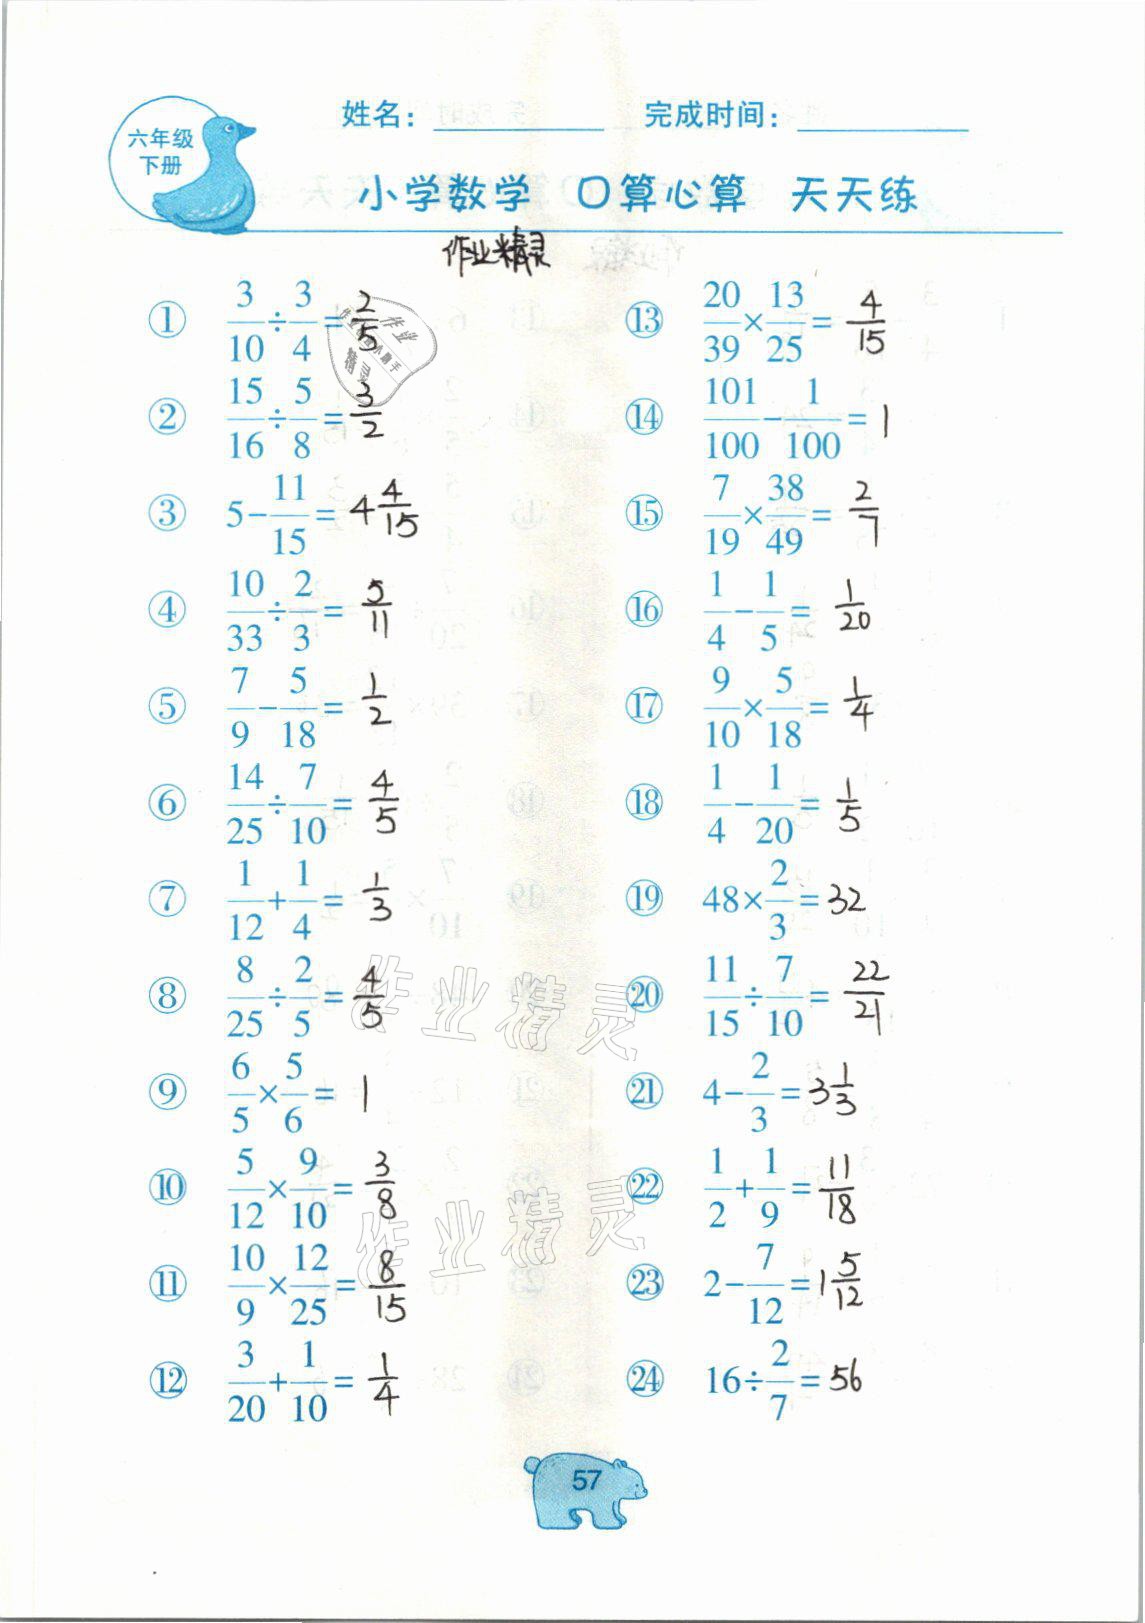 姓名： 完成时间：
六年级
下册
小学数学 口算心算 天天练
作业精灵
① 3/10÷3/4=2/5
② 15/16÷5/8=3/2
③ 5-11/15=4 4/15
④ 10/33÷2/3=5/11
⑤ 7/9-5/18=1/2
⑥ 14/25÷7/10=4/5
⑦ 1/12+1/4=1/3
⑧ 8/25÷2/5=4/5
⑨ 6/5×5/6=1
⑩ 5/12×9/10=3/8
⑪ 10/9×12/25=8/15
⑫ 3/20+1/10=1/4
⑬ 20/39×13/25=4/15
⑭ 101/100-1/100=1
⑮ 7/19×38/49=2/7
⑯ 1/4-1/5=1/20
⑰ 9/10×5/18=1/4
⑱ 1/4-1/20=1/5
⑲ 48×2/3=32
⑳ 11/15÷7/10=22/21
㉑ 4-2/3=3 1/3
㉒ 1/2+1/9=11/18
㉓ 2-7/12=1 5/12
㉔ 16÷2/7=56
作业精灵
作业精灵
57